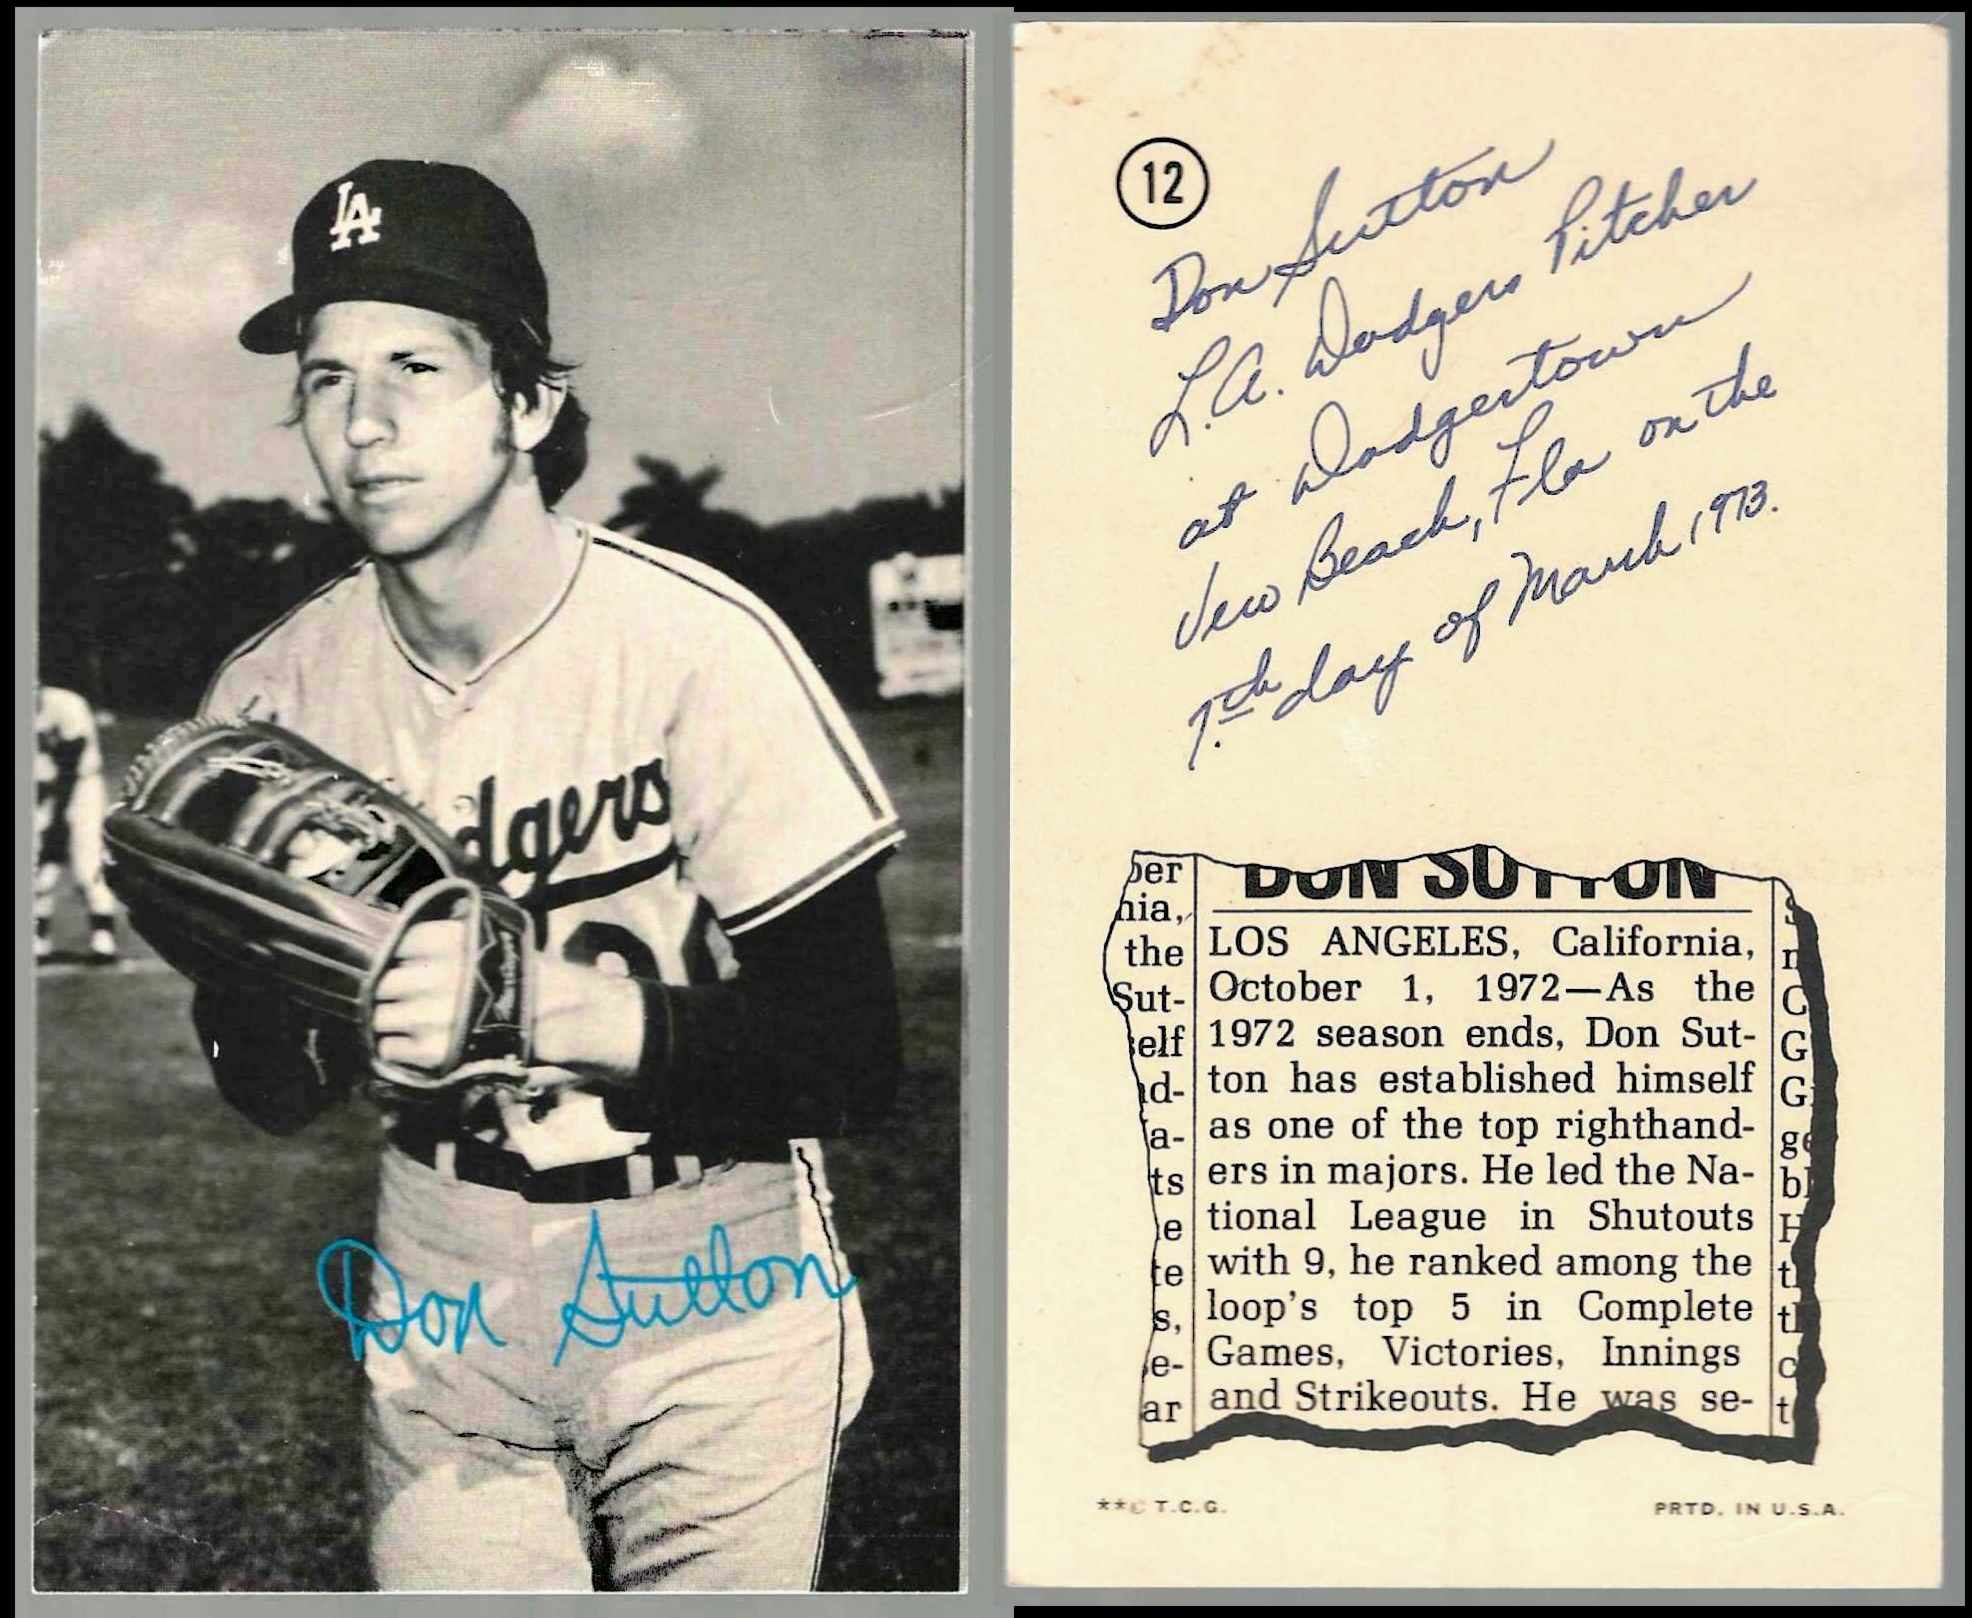 LA
dgers
Don Sutton
12
Don Sutton
L.A. Dodgers Pitcher
at Dodgertown
Vero Beach, Fla on the
7.th day of March, 1973.
DON SUTTON
LOS ANGELES, California,
October 1, 1972—As the
1972 season ends, Don Sut-
ton has established himself
as one of the top righthand-
ers in majors. He led the Na-
tional League in Shutouts
with 9, he ranked among the
loop's top 5 in Complete
Games, Victories, Innings
and Strikeouts. He was se-
per
nia,
the
Sut-
self
nd-
a-
ts
e
te
s,
e-
ar
n
C
G
G
ge
bl
H
t
tl
c
t
**© T.C.G.
PRTD. IN U.S.A.